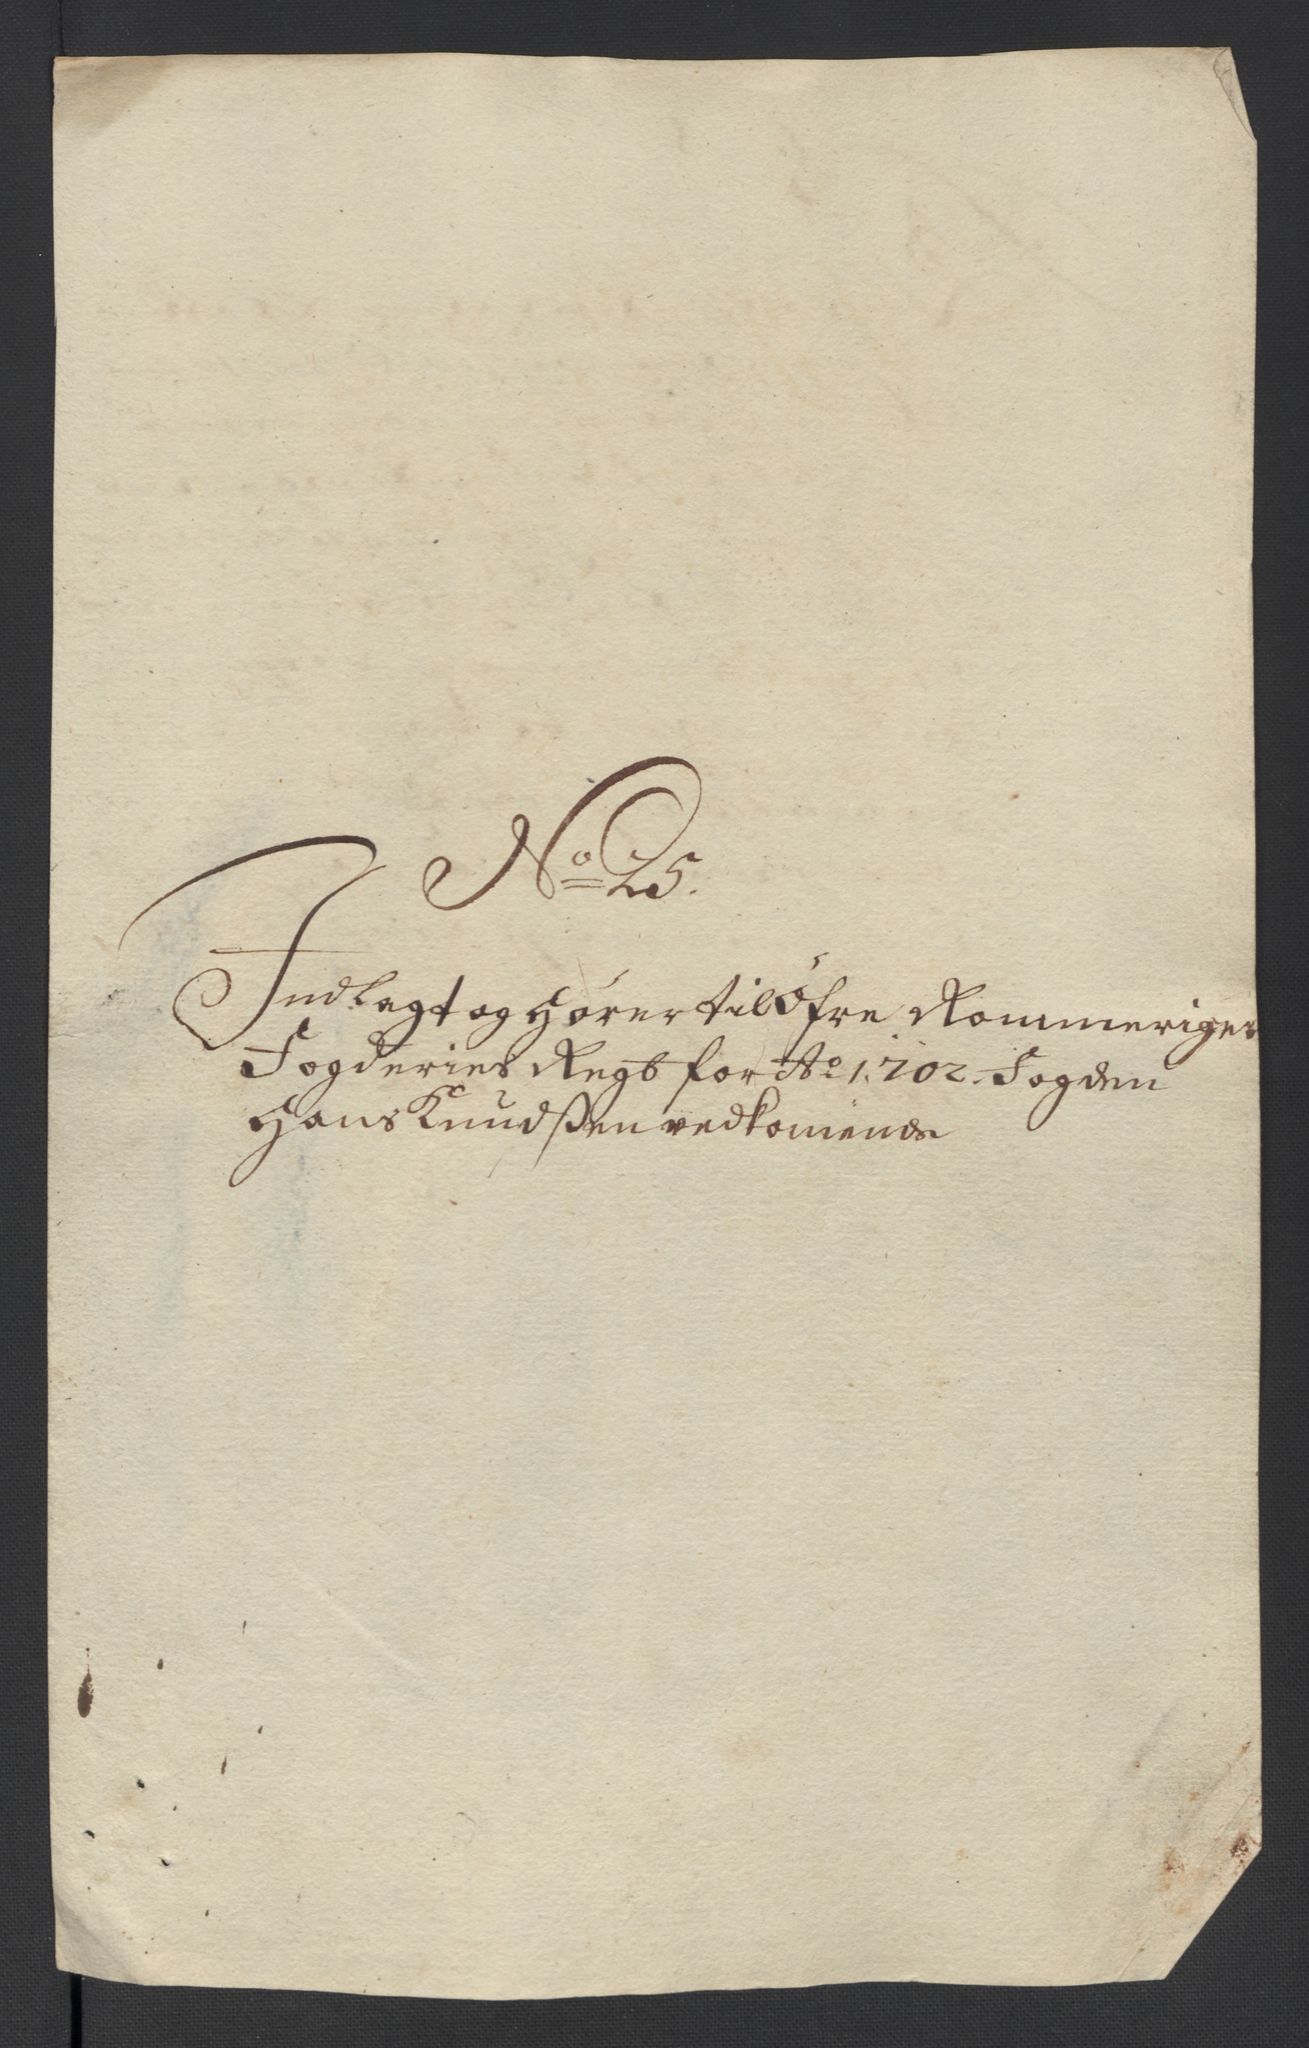 No 25.
Indlagt og hører til Øfre Rommeriges
Fogderies Regb for Ao 1702. Fogden
Hans Knudßen vedkomende